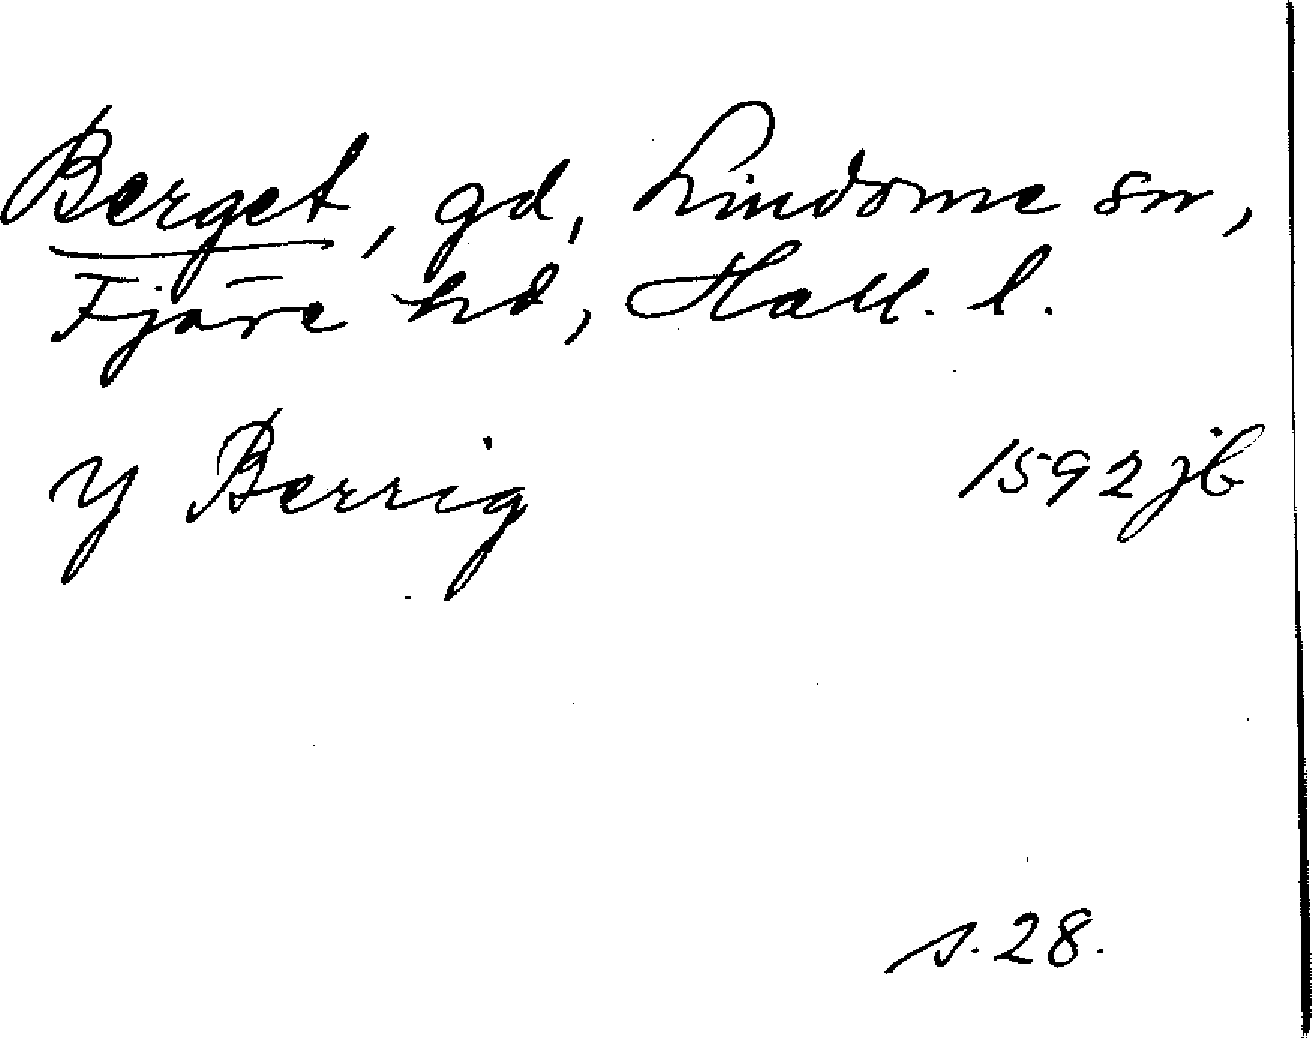 Berget, gd, Lindome sn,
Fjäre hd, Hall. l.
y Berrig 1592 jb
s. 28.